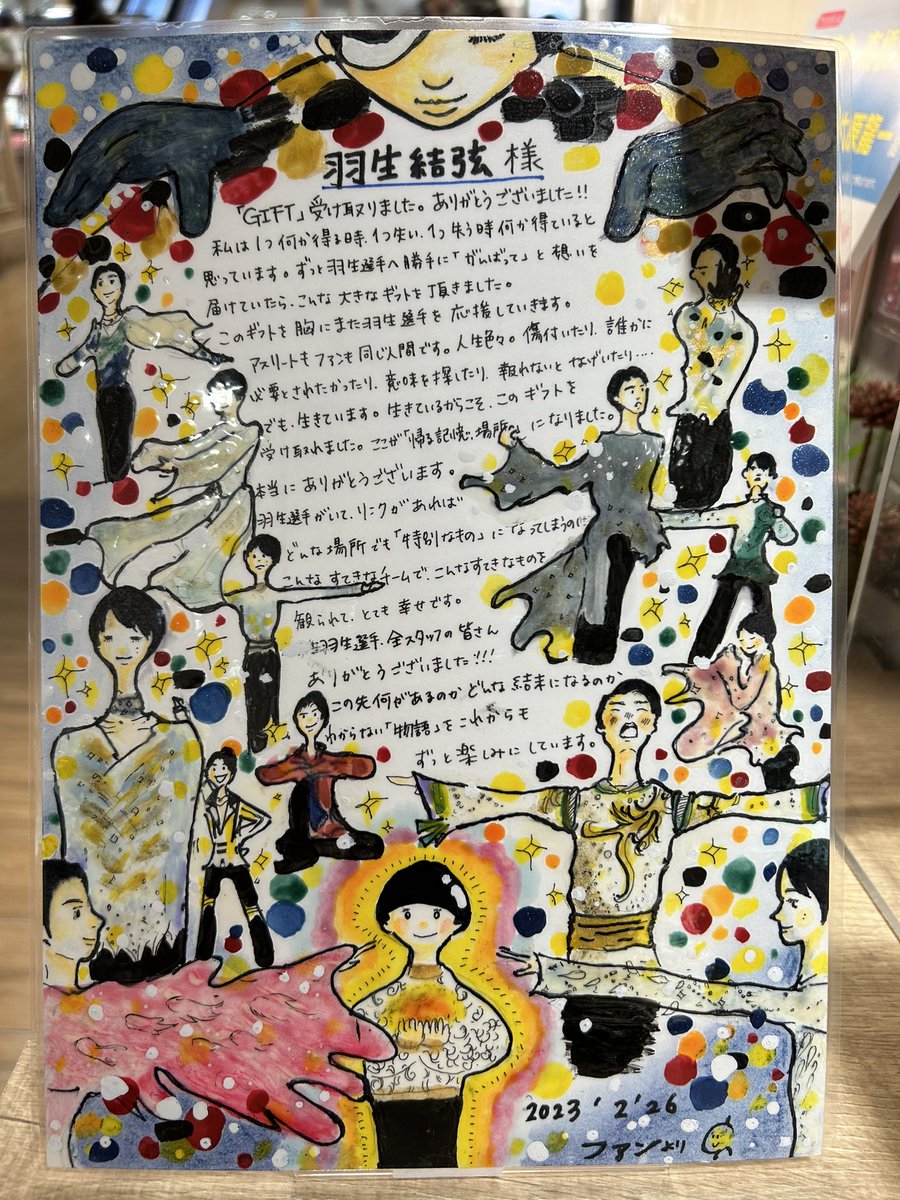 羽生結弦 様
「GIFT」受け取りました。ありがとうございました!!
私は1つ何か得る時、1つ失い、1つ失う時何か得ていると
思っています。ずっと羽生選手へ勝手に「がんばって」と想いを
届けていたら、こんな大きなギフトを頂きました。
このギフトを胸にまた羽生選手を応援していきます。
アスリートもファンも同じ人間です。人生色々。傷付いたり、誰かに
必要とされたかったり、意味を探したり、報れないとなげいたり....
でも、生きています。生きているからこそ、このギフトを
受け取れました。ここが「帰る記憶、場所。」になりました。
本当にありがとうございます。
羽生選手がいて、リンクがあれば
どんな場所でも「特別なもの」になってしまうのに
こんなすてきなチームで、こんなすてきなものを
観られて、とても幸せです。
羽生選手、全スタッフの皆さん
ありがとうございました!!!
この先何があるのか どんな結末になるのか
わからない「物語」をこれからも
ずっと楽しみにしています。
2023'2'26
ファンより